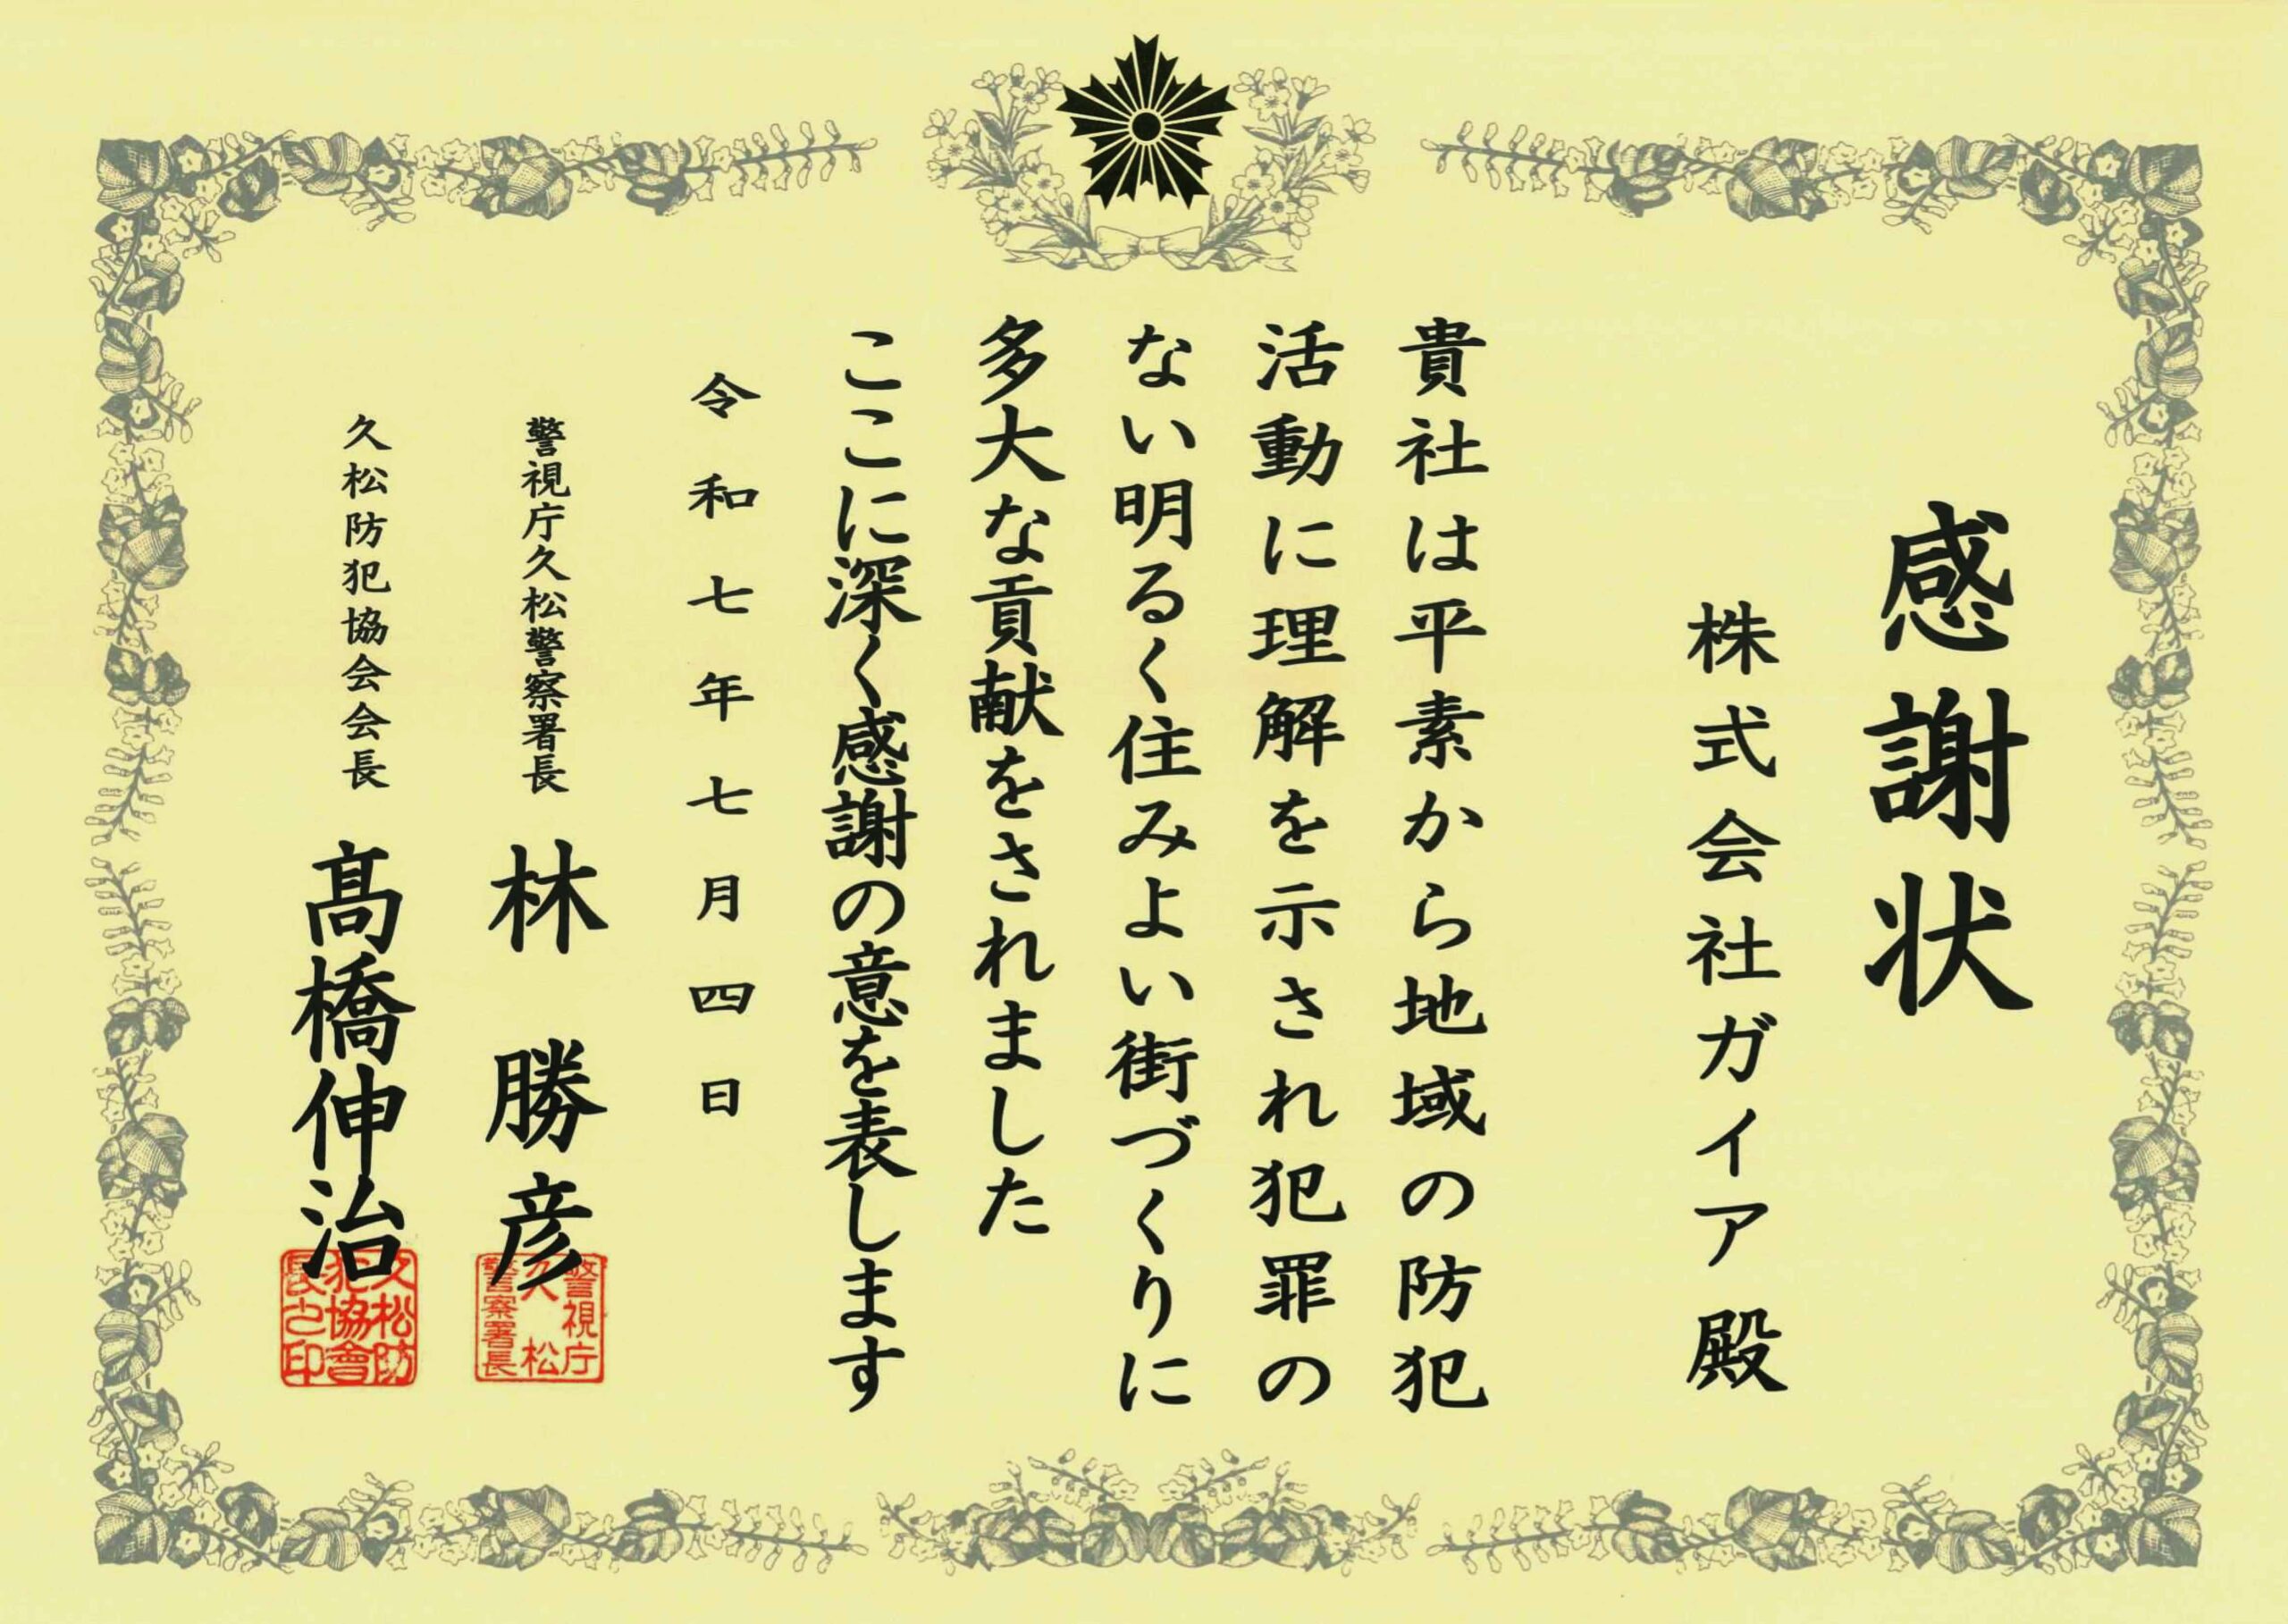 感謝状
株式会社ガイア殿
貴社は平素から地域の防犯
活動に理解を示され犯罪の
ない明るく住みよい街づくりに
多大な貢献をされました
ここに深く感謝の意を表します
令和七年七月四日
警視庁久松警察署長 林勝彦
警視庁
久松
警察署長
久松防犯協会会長 髙橋伸治
久松防
犯協會
長之印